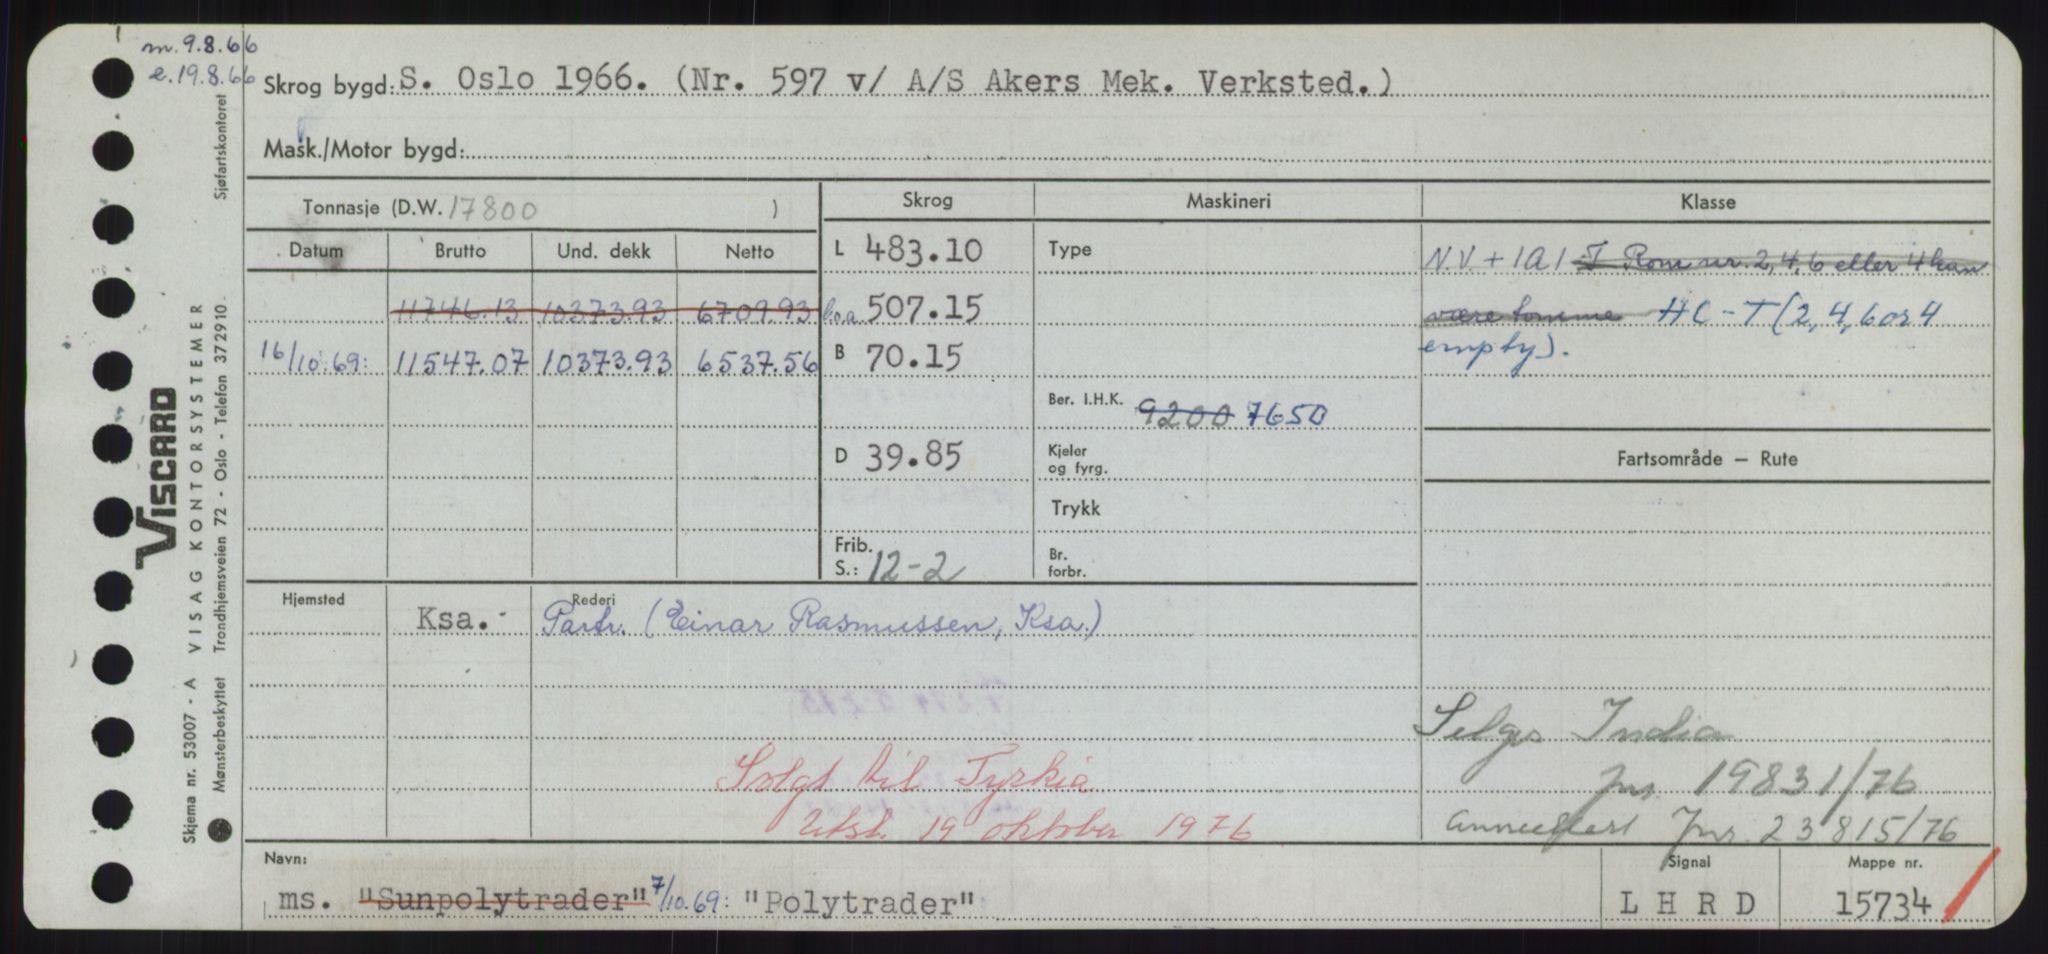 m. 9.8.66
e. 19.8.66
Skrog bygd: S. Oslo 1966. (Nr. 597 v/ A/S Akers Mek. Verksted.)
Mask./Motor bygd:
Tonnasje (D.W. 17800 )
Skrog
Maskineri
Klasse
Datum Brutto Und. dekk Netto
L 483.10
Type
N.V. + 1A1 I Rom nr. 2, 4, 6 eller 4 kan
11746.13 10373.93 6709.93
b.o.a. 507.15
være tomme HC-T (2, 4, 6 or 4
16/10.69: 11547.07 10373.93 6537.56
B 70.15
empty).
Ber. I.H.K. 9200 7650
D 39.85
Kjeler
og fyrg.
Fartsområde — Rute
Trykk
Frib.
S.: 12-2
Br.
forbr.
Hjemsted
Ksa.
Rederi
Partr. (Einar Rasmussen, Ksa.)
Selges India
jnr. 19831/76
Solgt til Tyrkia
Utsl. 19 oktober 1976
annullert Jnr. 23815/76
Navn:
ms. "Sunpolytrader" 7/10.69: "Polytrader"
Signal
L H R D
Mappe nr.
15734
Viscard
VISAG KONTORSYSTEMER
Skjema nr. 53007 - A
Mønsterbeskyttet Trondhjemsveien 72 - Oslo - Telefon 372910. Sjøfartskontoret